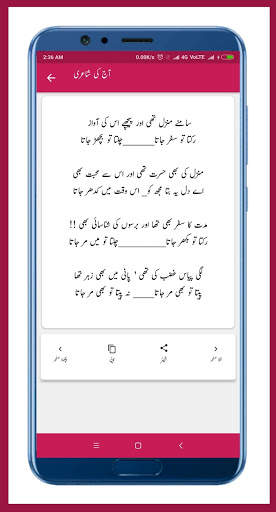 2:36 AM 0.00K/s 4G VoLTE
آج کی شاعری
سامنے منزل تھی اور پیچھے اس کی آواز
رکتا تو سفر جاتا______چلتا تو بچھڑ جاتا
منزل کی بھی حسرت تھی اور اس سے محبت بھی
اے دل یہ بتا مجھ کو_ اس وقت میں کدھر جاتا
مدت کا سفر بھی تھا اور برسوں کی شناسائی بھی !!
رکتا تو بکھر جاتا______چلتا تو میں مر جاتا
لگی پیاس غضب کی تھی ' پانی میں بھی زہر تھا
پیتا تو بھی مر جاتا____ نہ پیتا تو بھی مر جاتا
کاپی
شیئر